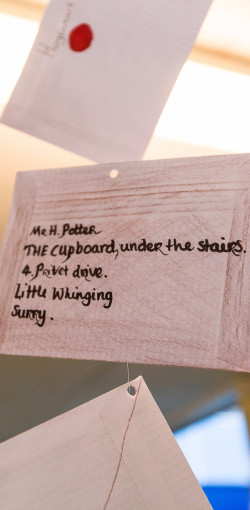 Mr H. Potter
THE Cupboard, under the stairs.
4. Privet drive.
Little Whinging
Surry.